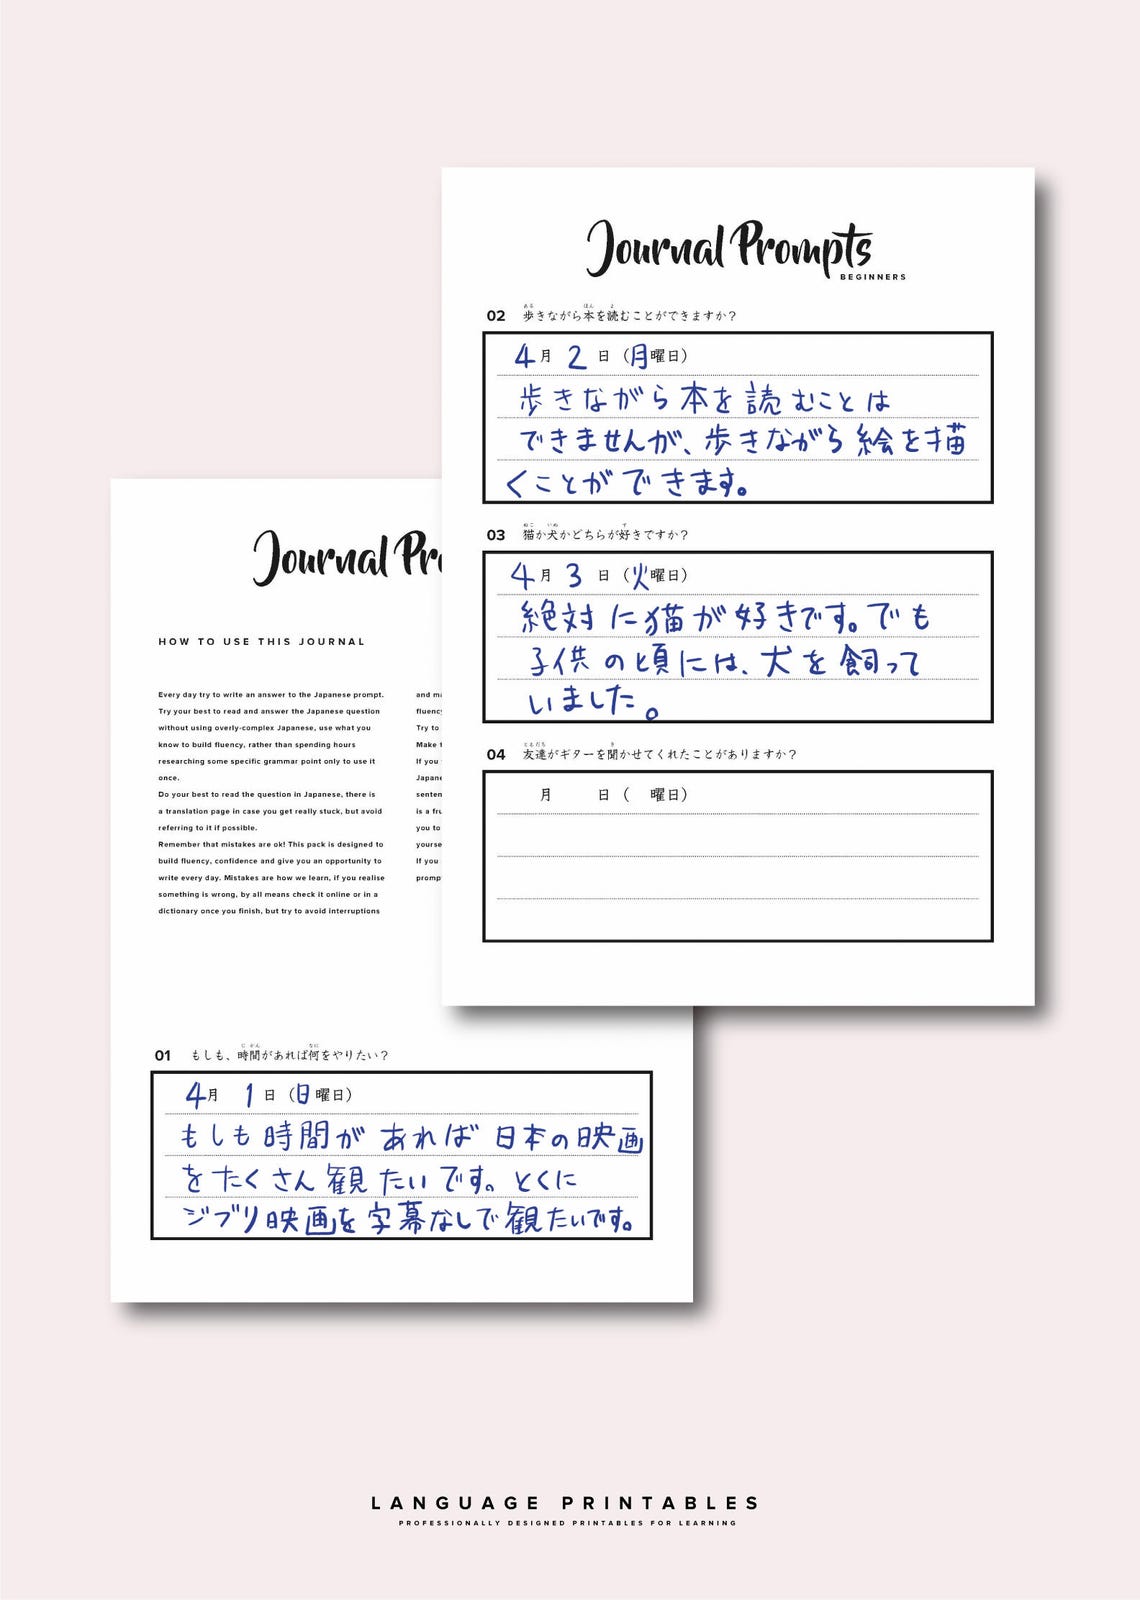 Journal Prompts
BEGINNERS
02 歩きながら本を読むことができますか？
ある ほん よ
4月 2 日（月曜日）
歩きながら本を読むことは
できませんが、歩きながら絵を描
くことができます。
03 猫か犬かどちらが好きですか？
ねこ いぬ す
4月 3 日（火曜日）
絶対に猫が好きです。でも
子供の頃には、犬を飼って
いました。
04 友達がギターを聞かせてくれたことがありますか？
ともだち き
月 日（ 曜日）
Journal Pro
HOW TO USE THIS JOURNAL
Every day try to write an answer to the Japanese prompt.
Try your best to read and answer the Japanese question
without using overly-complex Japanese, use what you
know to build fluency, rather than spending hours
researching some specific grammar point only to use it
once.
Do your best to read the question in Japanese, there is
a translation page in case you get really stuck, but avoid
referring to it if possible.
Remember that mistakes are ok! This pack is designed to
build fluency, confidence and give you an opportunity to
write every day. Mistakes are how we learn, if you realise
something is wrong, by all means check it online or in a
dictionary once you finish, but try to avoid interruptions
and ma
fluency
Try to
Make t
If you
Japane
senten
is a fru
you to
yourse
If you
promp
01 もしも、時間があれば何をやりたい？
じ かん なに
4月 1 日（日曜日）
もしも時間があれば日本の映画
をたくさん観たいです。とくに
ジブリ映画を字幕なしで観たいです。
LANGUAGE PRINTABLES
PROFESSIONALLY DESIGNED PRINTABLES FOR LEARNING